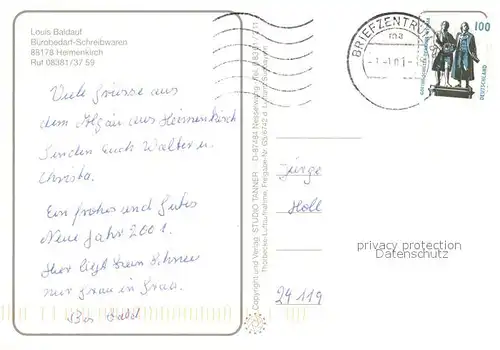 Louis Baldauf
Bürobedarf-Schreibwaren
88178 Heimenkirch
Ruf 08381/37 59
Viele Grüsse aus
dem Allgäu aus Heimenkirch
senden euch Walter u.
Christa.
Ein frohes und gutes
Neue Jahr 2001.
Hier liegt kein Schnee
nur Grau in Grau.
Bis bald
Copyright und Verlag: STUDIO TANNER D-87484 Nesselwang
BRIEFZENTRUM
ma
-1.-1.01-
100
DEUTSCHLAND
Jürge
Holl
24 119
privacy protection
Datenschutz